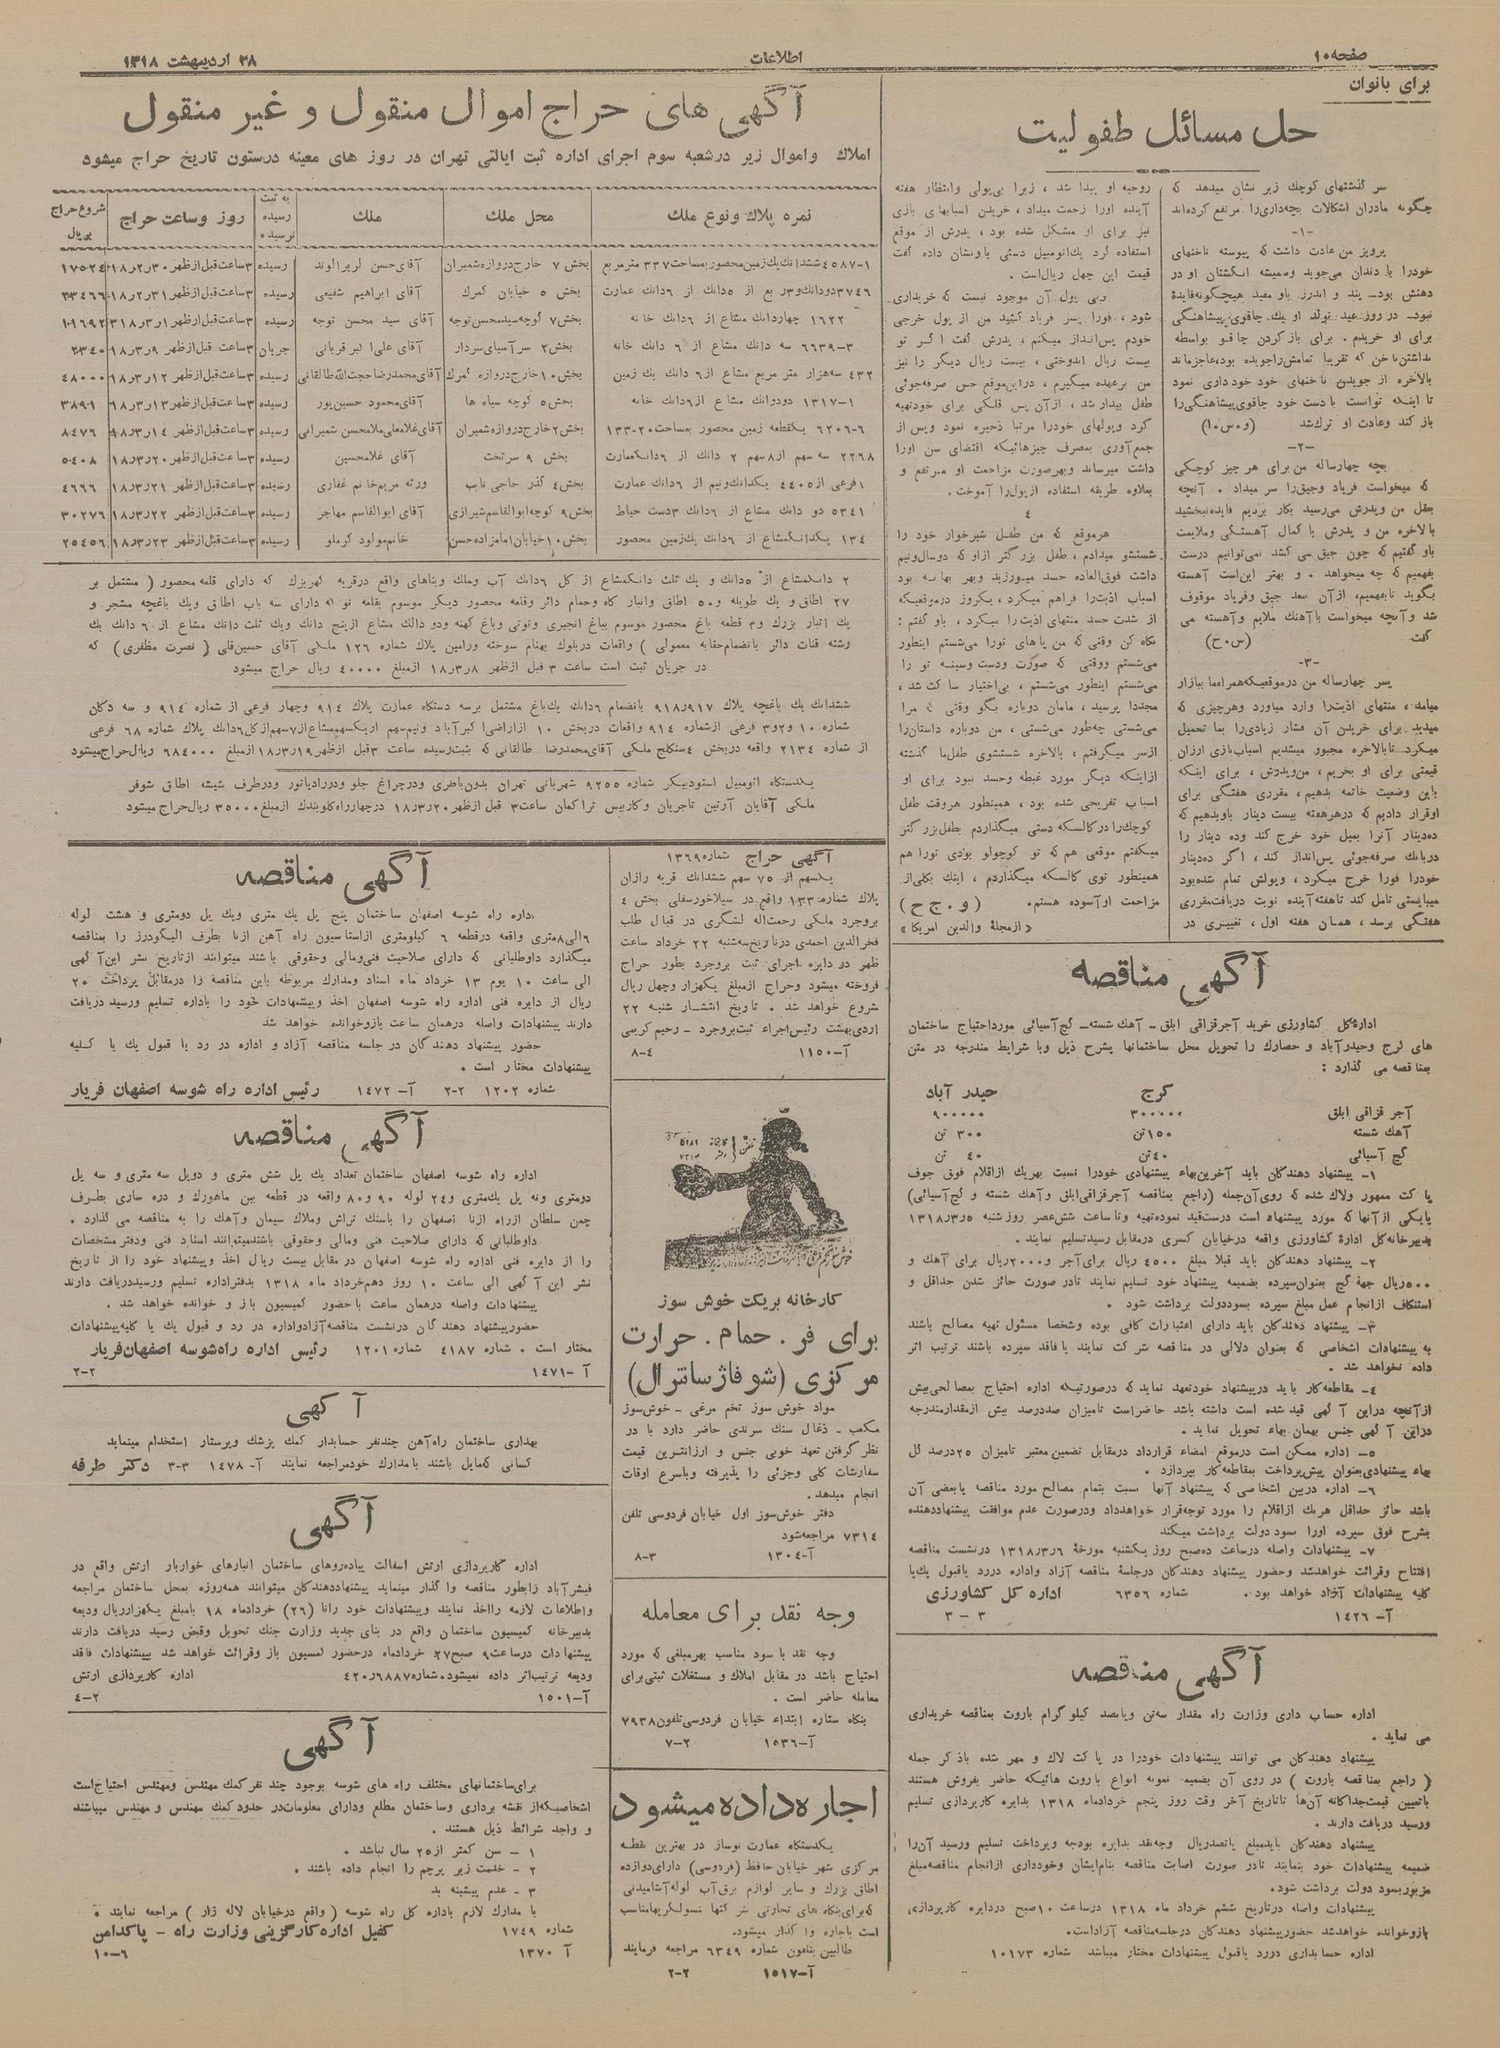 صفحه۱۰
اطلاعات
۲۸ اردیبهشت ۱۳۱۸
برای بانوان
حل مسائل طفولیت
سر گذشتهای کوچک زیر نشان میدهد که
چگونه مادران اشکالات بچه‌داری‌را مرتفع کرده‌اند
-۱-
پرویز من عادت داشت که پیوسته ناخنهای
خودرا با دندان می‌جوید وهمیشه انگشتان او در
دهنش بود- پند و اندرز باو مفید هیچگونه‌فایدهٔ
نبود- در روز عید تولد او یک چاقوی‌پیشاهنگی
برای او خریدم. برای باز کردن چاقو بواسطه
نداشتن‌ناخن که تقریبا تمامش‌راجویده بودعاجزماند
بالاخره از جویدن ناخنهای خود خودداری نمود
تا اینکه توانست با دست خود چاقوی‌پیشاهنگی‌را
باز کند وعادت او ترك‌شد
-۲-
بچه چهارساله من‌برای هر چیز کوچکی
که میخواست فریاد وجیق‌را سر میداد . آنچه
بعقل من وپدرش می‌رسید بکار بردیم فایده‌نبخشید
بالاخره من و پدرش با کمال آهستگی وملایمت
باو گفتیم که چون جیق می کشد نمی‌توانیم درست
بفهمیم که چه میخواهد . و بهتر این‌است آهسته
بگوید تابفهمیم، ازآن ببعد جیق وفریاد موقوف
شد وآنچه میخواست باآهنگ ملایم وآهسته می
گفت (س.ح)
-۳-
پسر چهارساله من درموقعیکه‌همراه‌ما ببازار
میامد، منتهای اذیت‌را وارد میاورد وهرچیزی که
میدید برای خریدن آن فشار زیادی‌را بما تحمیل
میکرد. تابالاخره مجبور میشدیم اسباب‌بازی ارزان
قیمتی برای او بخریم، من‌وپدرش، برای اینکه
باین وضعیت خاتمه بدهیم، مقرری هفتگی برای
اوقرار دادیم که درهرهفته بیست دینار باوبدهیم که
ده‌دینار آنرا بمیل خود خرج کند وده دینار را
دربانك صرفه‌جوئی پس‌انداز کند، اگر ده‌دینار
خودرا فورا خرج میکرد، وپولش تمام شده‌بود
میبایستی تامل کند تاهفته‌آینده نوبت دریافت‌مقرری
هفتگی برسد، همان هفته اول، تغییری در
روحیه او پیدا شد، زیرا بی‌پولی وانتظار هفته
آینده اورا زحمت میداد، خریدن اسبابهای بازی
نیز برای او مشکل شده بود، پدرش از موقع
استفاده کرد یك‌اتومبیل دستی باونشان داده گفت
قیمت این چهل ریال‌است.
شود، فورا پسر فریاد کشید من از پول خرجی
خودم پس‌انداز میکنم، پدرش گفت اگر تو
بیست ریال اندوختی، بیست ریال دیگر را نیز
من برعهده میگیرم، دراین‌موقع حس صرفه‌جوئی
طفل بیدار شد، ازآن پس قلکی برای خودتهیه
کرد وپولهای خودرا مرتبا ذخیره نمود وپس از
جمع‌آوری بمصرف چیزهائیکه اقتضای سن اورا
داشت میرساند وبهرصورت مزاحمت او مرتفع و
بعلاوه طریقه استفاده ازپول‌را آموخت.
۴
هرموقع که من طفل شیرخوار خود را
شستشو میدادم، طفل بزرگتر ازاو که دوسال‌ونیم
داشت فوق‌العاده حسد میورزید وبهر بهانه بود
اسباب اذیت‌را فراهم میکرد، یکروز درموقعیکه
از شدت حسد منتهای اذیت‌را میکرد، باو گفتم:
نگاه کن وقتی که من پاهای تورا می‌شستم اینطور
می‌شستم ووقتی که صورت ودست وسینه تو را
می‌شستم اینطور می‌شستم، بی‌اختیار ساکت شد،
مجددا پرسید، مامان دوباره بگو وقتی که مرا
می‌شستی چه‌طور می‌شستی، من دوباره داستان‌را
ازسر میگرفتم، بالاخره شستشوی طفل‌ما گذشته
ازاینکه دیگر مورد غبطه وحسد نبود برای او
اسباب تفریحی شده بود، همینطور هروقت طفل
کوچك‌را درکالسکه دستی میگذاردم بطفل‌بزرگتر
میگفتم موقعی هم که تو کوچولو بودی تورا هم
همینطور توی کالسکه میگذاردم، اینك بکلی‌از
مزاحمت اوآسوده هستم. (و.ج ح)
«ازمجلهٔ والدین امریکا»
آگهی های حراج اموال منقول و غیر منقول
املاك واموال زیر درشعبه سوم اجرای اداره ثبت ایالتی تهران در روز های معینه درستون تاریخ حراج میشود
نمره پلاك ونوع ملك | محل ملك | ملك | به ثبت رسیده نرسیده | روز وساعت حراج | شروع حراج بریال
۱-۴۵۸۷ ششدانك‌یك‌زمین‌محصوربمساحت۳۳۷ مترمربع | بخش ۷ خارج‌دروازه‌شمیران | آقای‌حسن | رسیده | ۳ساعت‌قبل‌ازظهر ۳۰ر۲ر۱۸ | ۱۷۵۲۴
۳۷۴۶ | بخش ۵ خیابان گمرك | آقای ابراهیم شفیعی | رسیده | ۳ساعت‌قبل‌ازظهر ۳۱ر۲ر۱۸ | ۲۳۴۶۶
۱۶۲۲ چهاردانك مشاع از ۶دانك خانه | بخش۷ کوچه‌سیدمحسن‌توجه | آقای سید محسن توجه | رسیده | ۳ساعت‌قبل‌ازظهر ۱ر۳ر۳۱۸ | ۱۰۱۶۹۲
۳-۶۶۳۹ سه دانك مشاع از ۶ دانك خانه | بخش۲ سرآسیای‌سردار | آقای علی‌اکبر قربانی | جریان | ۳ساعت قبل‌ازظهر ۹ر۳ر۱۸ | ۲۳۴۰
۴۳۲ سه‌هزار متر مربع مشاع از۶ دانك یك زمین | بخش۱۰خارج‌دروازه گمرك | آقای‌محمدرضاحجت‌الله‌طالقانی | رسیده | ۳ساعت‌قبل‌ازظهر ۱۲ر۳ر۱۸ | ۴۸۰۰۰
۱-۱۳۱۷ دودوانك مشاع از ۶دانك خانه | بخش۵ کوچه سیاه ها | آقای‌محمود حسین‌پور | رسیده | ۳ساعت‌قبل‌ازظهر ۱۳ر۳ر۱۸ | ۳۸۹۰۱
۶-۶۲۰۶ یکقطعه زمین محصور بمساحت۲۰-۱۳۳ | بخش۲خارج‌دروازه‌شمیران | آقای‌غلامعلی‌ملامحسن‌شمیرانی | رسیده | ۳ساعت‌قبل‌ازظهر ۱۴ر۳ر۱۸ | ۸۴۷۶
۲۲۶۸ سه سهم از۸سهم ۲ دانك از ۶دانك‌عمارت | بخش ۹ سرتخت | آقای غلامحسین | رسیده | ۳ساعت‌قبل‌ازظهر ۲۰ر۳ر۱۸ | ۵۴۰۸
۱فرعی از ۴۴۰۵ یکدانك‌ونیم از ۶دانك عمارت | بخش۴ گذر حاجی نایب | ورثه مریم‌خانم غفاری | رسیده | ۳ساعت‌قبل‌ازظهر ۲۱ر۳ر۱۸ | ۴۶۶۶
۵۳۴۱ دو دانك مشاع از ۶دانك ۳دست حیاط | بخش ۹ کوچه‌ابوالقاسم‌شیرازی | آقای ابوالقاسم مهاجر | رسیده | ۳ساعت‌قبل‌ازظهر ۲۲ر۳ر۱۸ | ۳۰۲۷۶
۱۳۴ یکدانك‌مشاع از ۶دانك یك‌زمین محصور | بخش۱۰خیابان‌امامزاده‌حسن | خانم‌مولود کرملو | رسیده | ۳ساعت‌قبل‌ازظهر ۲۳ر۳ر۱۸ | ۲۵۴۵۶
۲ دانك‌مشاع از ۵دانك و یك ثلث دانك‌مشاع از کل ۶دانك آب وملك وبناهای واقع درقریه که دارای قلعه محصور ( مشتمل بر
۲۷ اطاق و یك طویله و۵۰ اطاق وانبار کاه وحمام دائر وقلعه محصور دیگر موسوم بقلعه نو که دارای سه باب اطاق ویك باغچه مشجر و
یك انبار بزرك و۲ قطعه باغ محصور موسوم بباغ انجیری وتوتی وباغ کهنه ودو دانك مشاع ازپنج دانك ویك ثلث دانك مشاع از ۶ دانك یك
رشته قنات دائر بانضمام‌حقابه معمولی ) واقعات دربلوك بهنام سوخته ورامین پلاك شماره ۱۲۶ ملکی آقای حسین‌قلی ( نصرت مظفری ) که
در جریان ثبت است ساعت ۳ قبل ازظهر ۸ر۳ر۱۸ ازمبلغ ۴۰۰۰۰ ریال حراج میشود
ششدانك یك باغچه پلاك ۹۱۷ر۹۱۸ بانضمام ۶دانك یك‌باغ مشتمل برسه دستگاه عمارت پلاك ۹۱۴ وچهار فرعی از شماره ۹۱۴ و سه دکان
شماره ۱۰ و۲و۳ فرعی ازشماره ۹۱۴ واقعات دربخش ۱۰ ازاراضی اکبرآباد ونیم‌سهم ازیکسهم‌مشاع‌از۷سهم‌ازکل۶دانك پلاك شماره ۶۸ فرعی
از شماره ۲۱۳۴ واقعه دربخش ۴سنگلج ملکی آقای‌محمدرضا طالقانی که بثبت‌رسیده ساعت ۳ قبل ازظهر۱۹ر۳ر۱۸ازمبلغ ۶۸۴۰۰۰ ریال‌حراج‌میشود
یکدستگاه اتومبیل استودبیکر شماره ۹۲۵۵ شهربانی تهران بدون‌باطری ودرچراغ جلو ودررادیاتور ودرطرف شیشه اطاق شوفر
ملکی آقایان آرتین تاجریان وکاربیس تراکمان ساعت۳ قبل ازظهر۲۰ر۳ر۱۸ درچهارراه‌گلوبندك ازمبلغ۳۵۰۰۰ ریال‌حراج میشود
آگهی مناقصه
اداره راه شوسه اصفهان ساختمان پنج پل یك متری ویك پل دومتری و هشت لوله
۶الی۸متری واقعه درقطعه ۶ کیلومتری ازاستاسیون راه آهن ازنا بطرف الیگودرز را بمناقصه
میگذارد داوطلبانی که دارای صلاحیت فنی‌ومالی وحقوقی باشند میتوانند ازتاریخ نشر این‌آگهی
الی ساعت ۱۰ یوم ۱۳ خرداد ماه اسناد ومدارك مربوطه باین مناقصه را درمقابل پرداخت ۲۰
ریال از دایره فنی اداره راه شوسه اصفهان اخذ وپیشنهادات خود را باداره تسلیم ورسید دریافت
دارند پیشنهادات واصله درهمان ساعت بازوخوانده خواهد شد
حضور پیشنهاد دهندگان در جلسه مناقصه آزاد و اداره در رد یا قبول یك یا کلیه
پیشنهادات مختار است.
شماره ۱۲۰۲ ۲-۲ آ- ۱۴۷۲ رئیس اداره راه شوسه اصفهان فریار
آگهی مناقصه
اداره راه شوسه اصفهان ساختمان تعداد یك پل شش متری و دوپل سه متری و سه پل
دومتری ونه پل یك‌متری و۲۴ لوله ۹۰ و۸۰ واقعه در قطعه بین ماهورك و دره ساری بطرف
چمن سلطان ازراه ازنا اصفهان را باسنك تراش وملاك سیمان وآهك را به مناقصه می گذارد.
داوطلبانی که دارای صلاحیت فنی ومالی وحقوقی باشندمیتوانند اسناد فنی ودفتر مشخصات
را از دایره فنی اداره راه شوسه اصفهان در مقابل بیست ریال اخذ وپیشنهاد خود را از تاریخ
نشر این آگهی الی ساعت ۱۰ روز دهم‌خرداد ماه ۱۳۱۸ بدفتراداره تسلیم ورسیددریافت دارند
پیشنهادات واصله درهمان ساعت باحضور کمیسیون باز و خوانده خواهد شد.
حضورپیشنهاد دهندگان درنشست مناقصه‌آزادواداره در رد و قبول یك یا کلیه‌پیشنهادات
مختار است. شماره ۴۱۸۷ شماره ۱۲۰۱ رئیس اداره راه‌شوسه اصفهان‌فریار
آ-۱۴۷۱ ۲-۲
آگهی
بهداری ساختمان راه‌آهن چندنفر حسابدار کمك پزشك وپرستار استخدام مینماید
کسانی که‌مایل باشند بامدارك خودمراجعه نمایند آ- ۱۴۷۸ ۳-۳ دکتر طرفه
آگهی
اداره کارپردازی ارتش اسفالت پیاده‌روهای ساختمان انبارهای خواربار ارتش واقع در
فیشرآباد رابطور مناقصه واگذار مینماید پیشنهاددهندگان میتوانند همه‌روزه بمحل ساختمان مراجعه
واطلاعات لازمه رااخذ نمایند وپیشنهادات خود راتا (۲۶) خردادماه ۱۸ بامبلغ یکهزارریال ودیعه
بدبیرخانه کمیسیون ساختمان واقع در بنای جدید وزارت جنك تحویل وقبض رسید دریافت دارند
پیشنهادات درساعت۹ صبح۲۷ خردادماه درحضور کمیسیون باز وقرائت خواهد شد پیشنهادات فاقد
ودیعه ترتیب‌اثر داده نمیشود.شماره۶۸۸۷ر۴۲۰ اداره کارپردازی ارتش
آ-۱۵۰۱ ۲-۴
آگهی
برای‌ساختمانهای مختلف راه های شوسه بوجود چند نفر کمك مهندس ومهندس احتیاج‌است
اشخاصیکه‌از نقشه برداری وساختمان مطلع ودارای معلومات‌در حدود کمك مهندس و مهندس میباشند
و واجد شرائط ذیل هستند.
۱ – سن کمتر از۲۵ سال نباشد.
۲ – خدمت زیر پرچم را انجام داده باشند.
۳ – عدم پیشینه بد
با مدارك لازم باداره کل راه شوسه ( واقع درخیابان لاله زار ) مراجعه نمایند
شماره ۱۷۴۹ کفیل اداره‌کارگزینی وزارت راه – پاکدامن
آ ۱۳۷۰ ۶-۱۰
آگهی حراج شماره۱۳۶۹
یکسهم از ۷۵ سهم ششدانك قریه رازان
پلاك شماره۱۳۳ واقع در سیلاخورسفلی بخش ۴
بروجرد ملکی رحمت‌اله لشگری در قبال طلب
فخرالدین احمدی درتاریخ‌سه‌شنبه ۲۲ خرداد ساعت
ظهر در دایره اجرای ثبت بروجرد بطور حراج
فروخته میشود وحراج ازمبلغ یکهزار وچهل ریال
شروع خواهد شد. تاریخ انتشار شنبه ۲۲
اردیبهشت رئیس‌اجراء ثبت‌بروجرد – رحیم کریمی
آ-۱۱۵۰ ۴-۸
کارخانه بریکت خوش سوز
برای فر. حمام. حرارت
مرکزی (شوفاژسانترال)
مواد خوش سوز تخم مرغی – خوش‌سوز
مکعب – ذغال سنك سرندی حاضر دارد با در
نظر گرفتن تعهد خوبی جنس و ارزانترین قیمت
سفارشات کلی وجزئی را پذیرفته وباسرع اوقات
انجام میدهد.
دفتر خوش‌سوز اول خیابان فردوسی تلفن
۷۳۱۴ مراجعه‌شود
آ-۱۳۰۴ ۳-۸
وجه نقد برای معامله
وجه نقد با سود مناسب بهرمبلغی که مورد
احتیاج باشد در مقابل املاك و مستغلات ثبتی‌برای
معامله حاضر است.
بنگاه ستاره ابتداء خیابان فردوسی‌تلفون۷۹۳۸
آ-۱۵۳۶ ۲-۷
اجاره‌داده‌میشود
یکدستگاه عمارت نوساز در بهترین نقطه
مرکزی شهر خیابان حافظ (فردوسی) دارای‌دوازده
اطاق بزرك و سایر لوازم برق‌آب لوله‌آشامیدنی
که‌برای‌بنگاه های تجارتی شرکتها کنسولگریهامناسب
است باجاره واگذار میشود.
طالبین بتلفون شماره ۶۳۴۹ مراجعه فرمایند
آ-۱۵۱۷ ۲-۲
آگهی مناقصه
ادارهٔ‌کل کشاورزی خرید آجرقزاقی ابلق – آهك شسته– گچ‌آسیائی مورداحتیاج ساختمان
های کرج وحیدرآباد و حصارك را تحویل محل ساختمانها بشرح ذیل وبا شرایط مندرجه در متن
بمناقصه می گذارد:
کرج حیدر آباد
آجر قزاقی ابلق ۳۰۰۰۰۰ ۹۰۰۰۰۰
آهك شسته ۱۵۰تن ۳۰۰ تن
گچ آسیائی ۴۰تن ۴۰ تن
۱– پیشنهاد دهندگان باید آخرین‌بهاء پیشنهادی خودرا نسبت بهریك ازاقلام فوق جوف
پاکت ممهور ولاك شده که روی‌آن‌جمله (راجع بمناقصه آجرقزاقی‌ابلق وآهك شسته و گچ‌آسیائی)
یایکی ازآنها که مورد پیشنهاد است درست‌قید نموده‌تهیه وتاساعت شش‌عصر روزشنبه ۵ر۳ر۱۳۱۸
بدبیرخانه‌کل ادارهٔ کشاورزی واقعه درخیابان کسری درمقابل رسیدتسلیم نمایند.
۲– پیشنهاد دهندگان باید قبلا مبلغ ۴۵۰۰ ریال برای‌آجر و۲۰۰۰ریال برای آهك و
۵۰۰ریال جههٔ گچ بعنوان‌سپرده بضمیمه پیشنهاد خود تسلیم نمایند تادر صورت حائز شدن حداقل و
استنکاف ازانجام عمل مبلغ سپرده بسوددولت برداشت شود.
۳– پیشنهاد دهندگان باید دارای اعتبارات کافی بوده وشخصا مسئول تهیه مصالح باشند
به پیشنهادات اشخاصی که بعنوان دلالی در مناقصه شرکت نمایند یافاقد سپرده باشند ترتیب اثر
داده نخواهد شد.
۴– مقاطعه‌کار باید درپیشنهاد خودتعهد نماید که درصورتیکه اداره احتیاج بمصالحی‌بیش
ازآنچه دراین آگهی قید شده است داشته باشد حاضراست تامیزان صددرصد بیش ازمقدارمندرجه
دراین آگهی جنس بهمان بهاء تحویل نماید.
۵– اداره ممکن است درموقع امضاء قرارداد درمقابل تضمین‌معتبر تامیزان ۲۵درصد کل
بهاء پیشنهادی‌بعنوان پیش‌پرداخت بمقاطعه‌کار بپردازد.
۶– اداره دربین اشخاصی که پیشنهاد آنها نسبت بتمام مصالح مورد مناقصه یابعضی آن
باشد حائز حداقل هریك ازاقلام را مورد توجه‌قرار خواهدداد ودرصورت عدم موافقت پیشنهاددهنده
بشرح فوق سپرده اورا بسود دولت برداشت میکند
۷– پیشنهادات واصله درساعت ده‌صبح روز یکشنبه مورخهٔ ۶ر۳ر۱۳۱۸ درنشست مناقصه
افتتاح وقرائت خواهدشد وحضور پیشنهاد دهندگان درجلسهٔ مناقصه آزاد واداره دررد یاقبول یك‌یا
کلیه پیشنهادات آزاد خواهد بود. شماره ۶۳۵۶ اداره کل کشاورزی
آ- ۱۴۲۶ ۳ – ۳
آگهی مناقصه
اداره حساب داری وزارت راه مقدار سه‌تن وپانصد کیلوگرام باروت بمناقصه خریداری
می نماید.
پیشنهاد دهندگان می توانند پیشنهادات خودرا در پاکت لاك و مهر شده باذکر جمله
( راجع بمناقصه باروت ) در روی آن بضمیمه نمونه انواع باروت هائیکه حاضر بفروش هستند
باتعیین قیمت‌جداگانه آن‌ها تاتاریخ آخر وقت روز پنجم خردادماه ۱۳۱۸ بدایره کارپردازی تسلیم
ورسید دریافت دارند.
پیشنهاد دهندگان بایدمبلغ پانصدریال وجه‌نقد بدایره بودجه وپرداخت تسلیم ورسید آن‌را
ضمیمه پیشنهادات خود بنمایند تادر صورت اصابت مناقصه بنام‌ایشان وخودداری ازانجام مناقصه‌مبلغ
مزبوربسود دولت برداشت شود.
پیشنهادات واصله درتاریخ ششم خرداد ماه ۱۳۱۸ درساعت ۱۰صبح دردایره کارپردازی
بازوخوانده خواهدشد حضورپیشنهاد دهندگان درجلسه‌مناقصه آزاداست.
اداره حسابداری دررد یاقبول پیشنهادات مختار میباشد شماره ۱۰۱۷۳